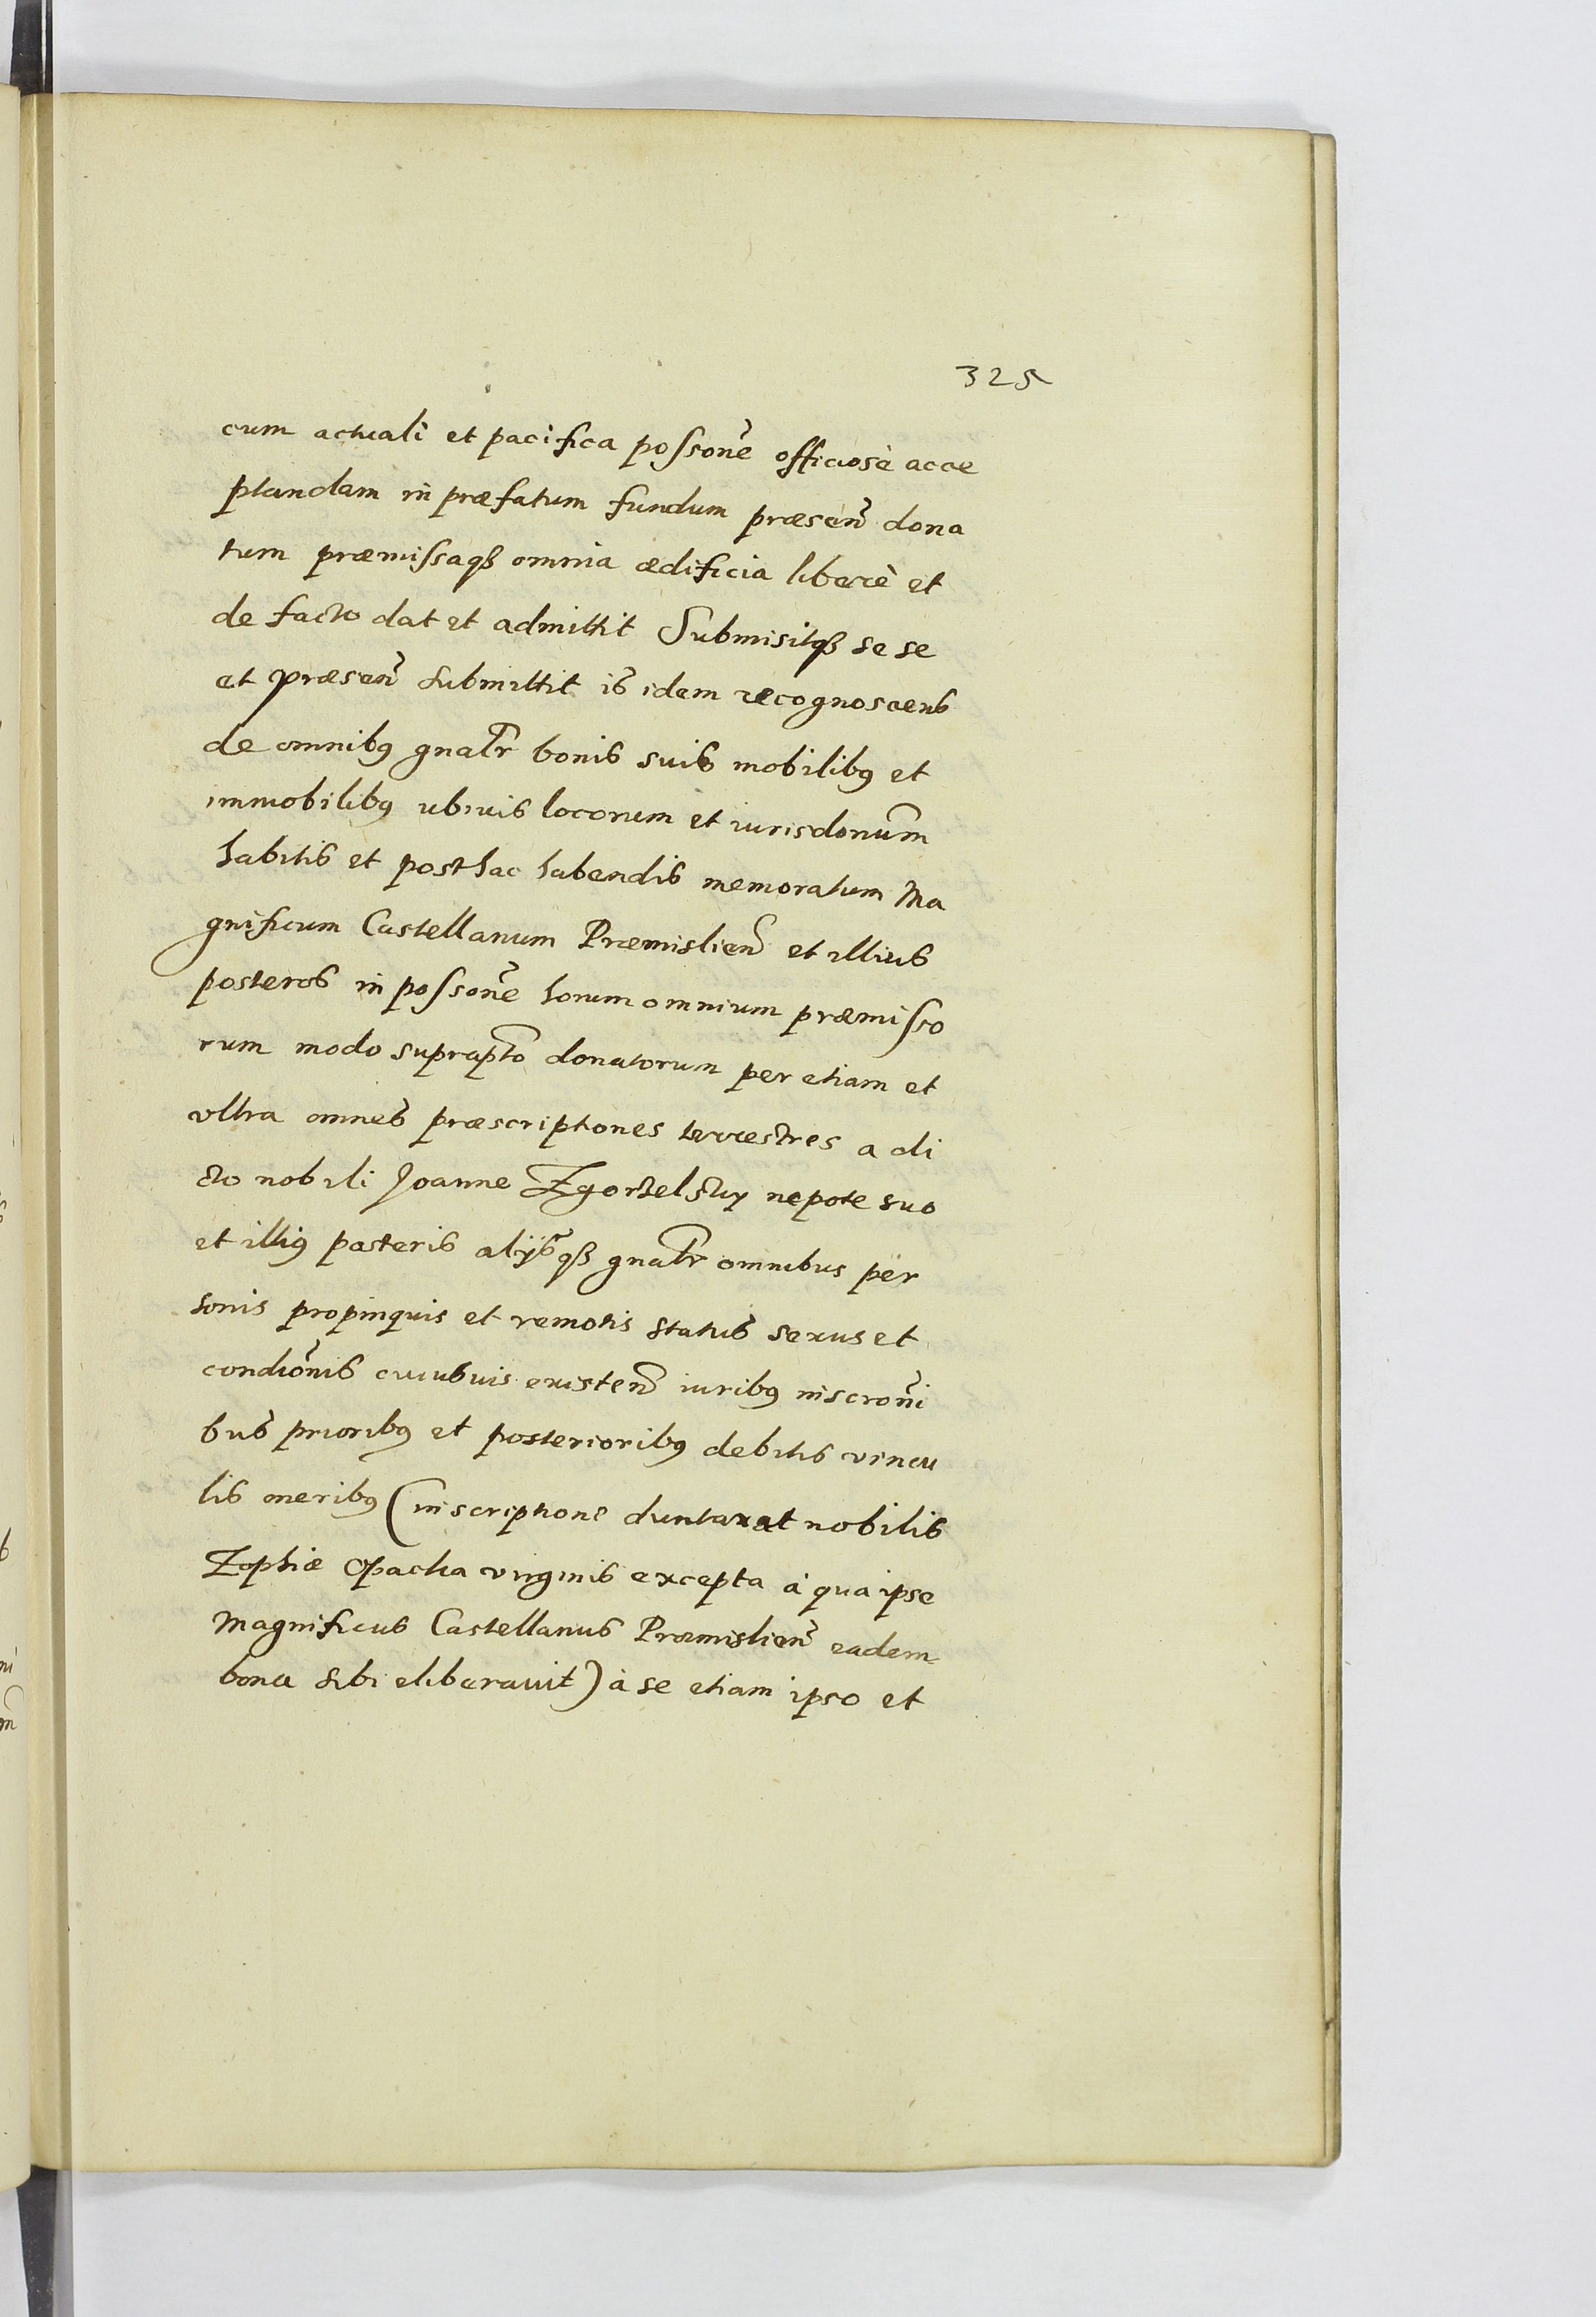 325
cum actuali et pacifica possone officiosè acce
ptandam in præfatum fundum præsen dona
tum præmissaq omnia ædificia liberè et
de facto dat et admittit Submisitq se se
et præsen submittit is idem recognoscens
de omnibq gnalr bonis suis mobilibq et
immobilibq ubivis locorum et iurisdonum
habitis et posthac habendis memoratum Ma
gnificum Castellanum Præmislien et illius
posteros in possone horum omnium præmisso
rum modo suprapto donatorum per etiam et
ultra omnes præscriptiones terrestres a di
cto nobili Joanne Zgorzelsky nepote suo
et illiq posteris alijsq gnalr omnibus per
sonis propinquis et remotis status sexus et
condionis cuiusvis existen iuribq inscroni
bus prioribq et posterioribq debitis vincu
lis oneribq (inscriptione duntaxat nobilis
Zophiæ Opacka virginis excepta à qua ipse
Magnificus Castellanus Præmislien eadem
bona sibi eliberavit) à se etiam ipso et